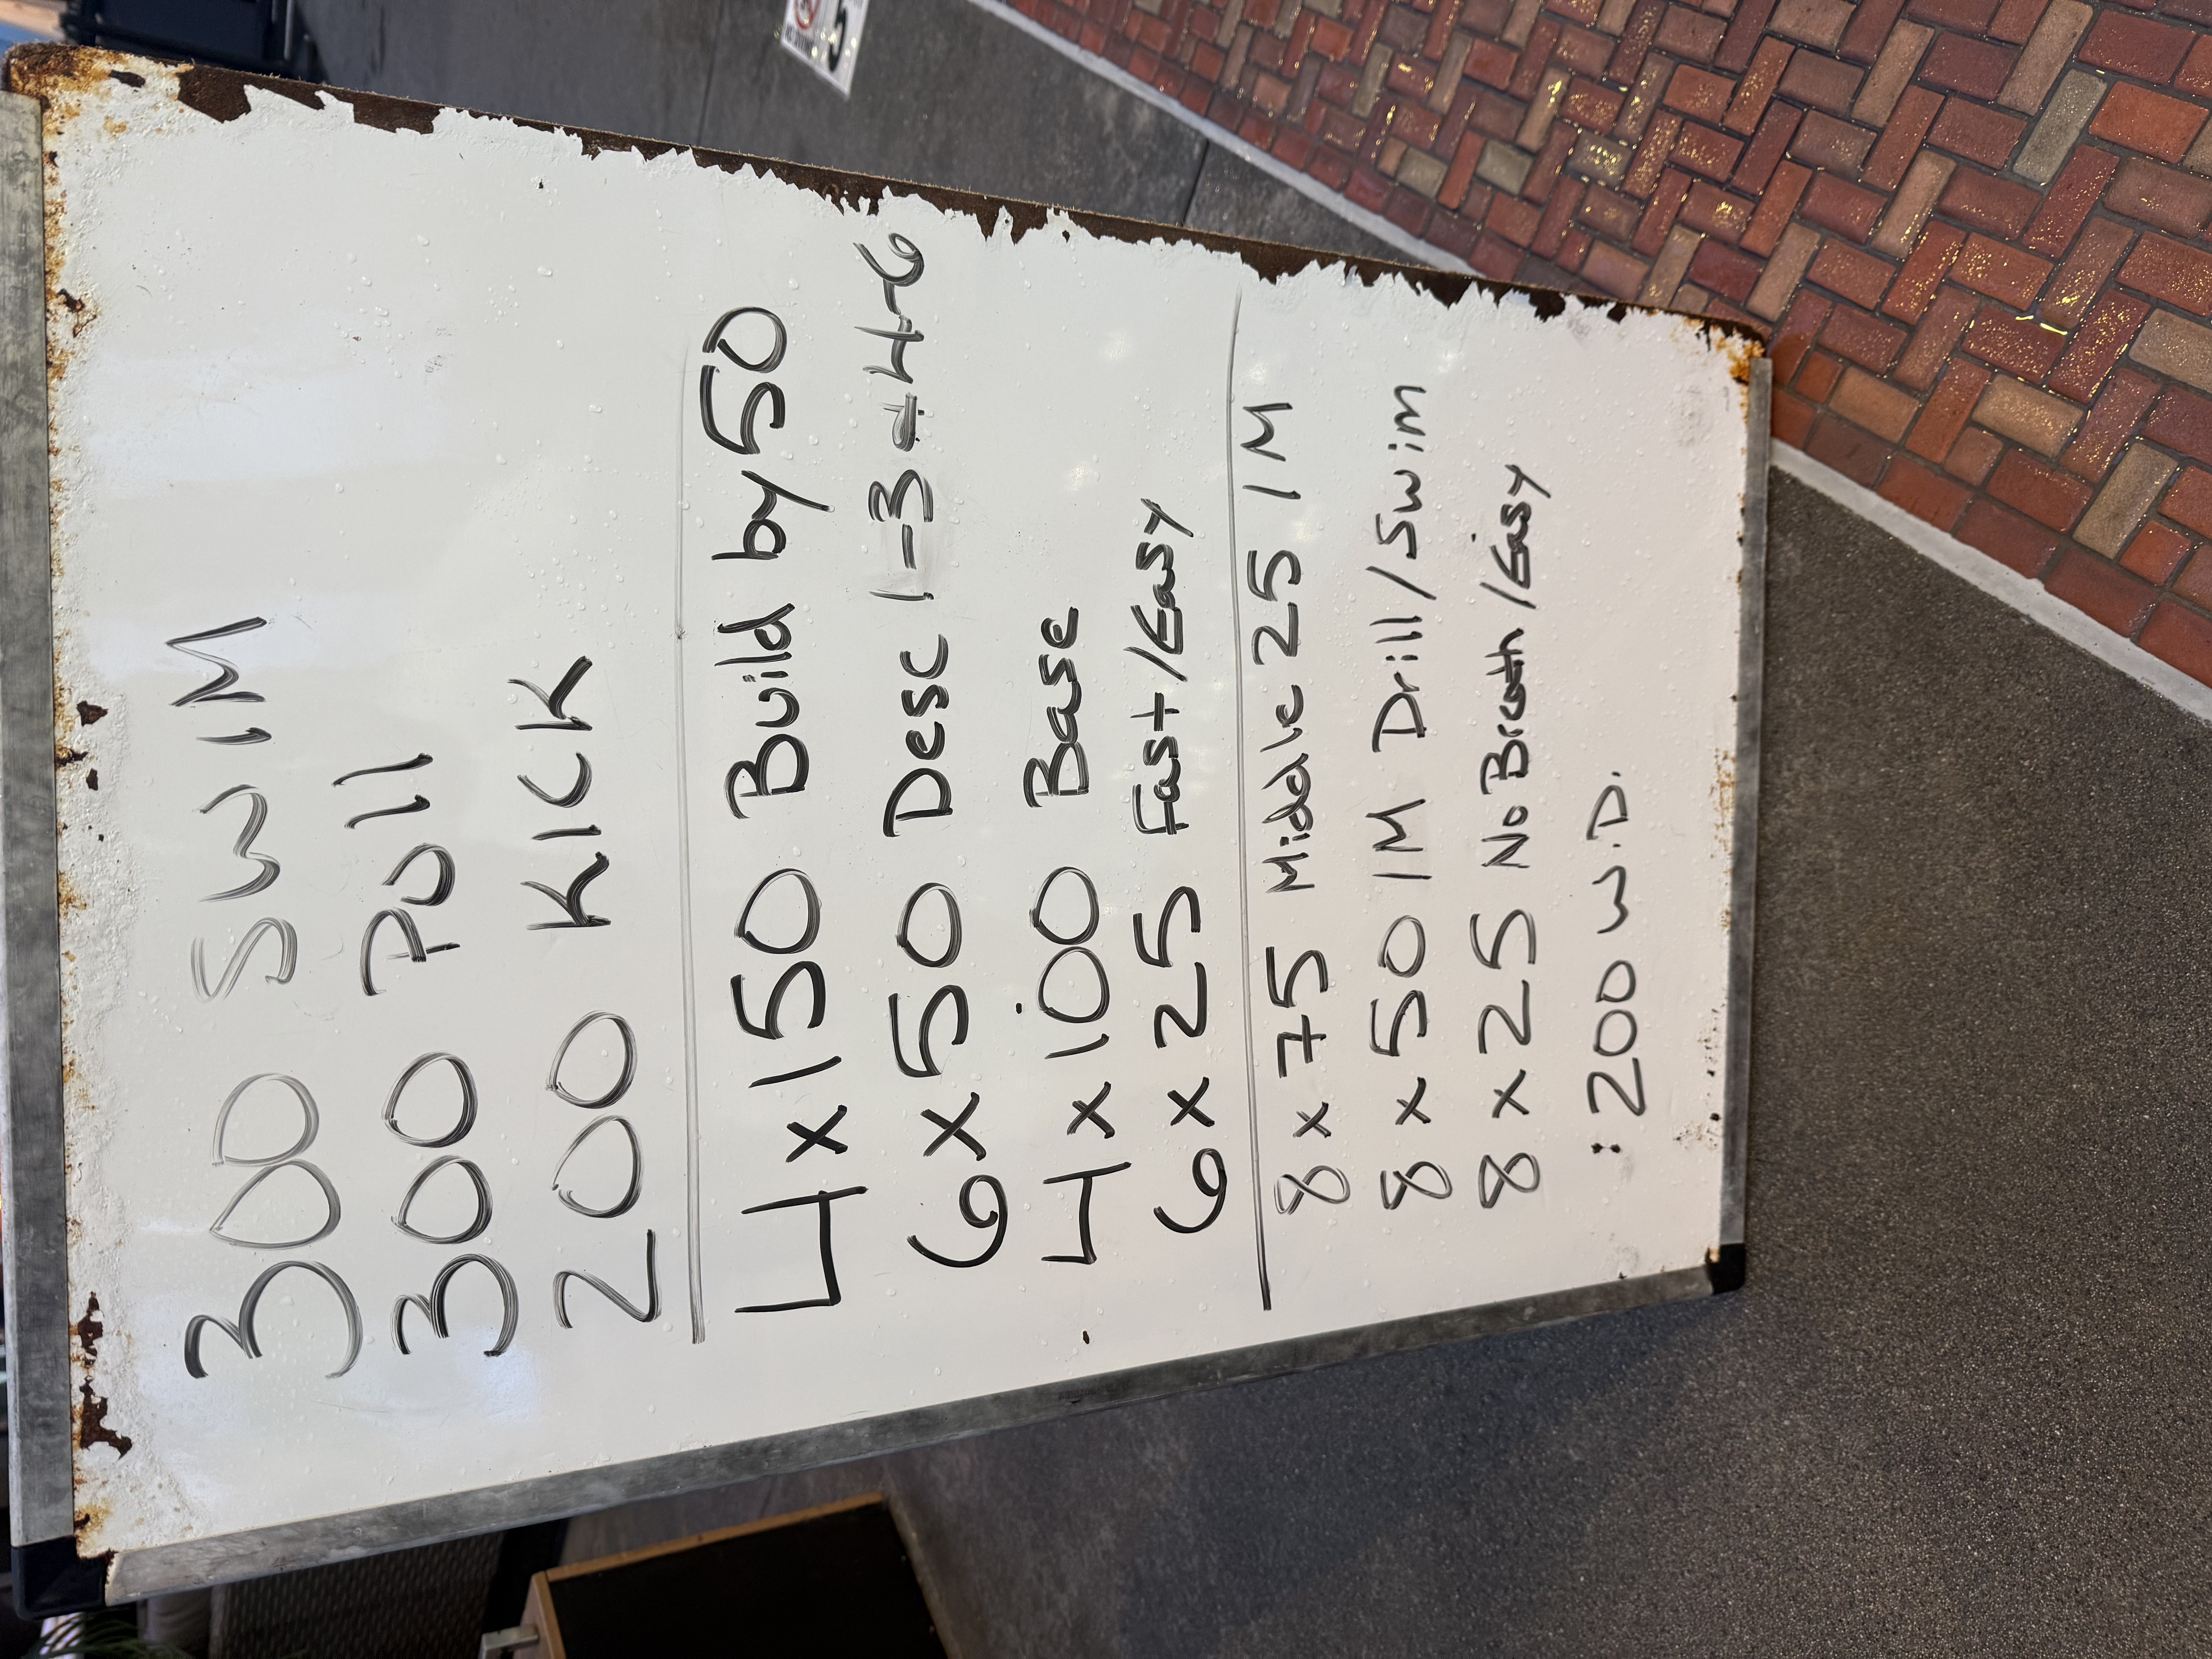 300 SWIM
300 Pull
200 KICK
4 x 150 Build by 50
6 x 50 Desc 1-3 + 4-6
4 x 100 Base
6 x 25 Fast/Easy
8 x 75 Middle 25 IM
8 x 50 IM Drill/Swim
8 x 25 No Breath/Easy
: 200 W.D.
5